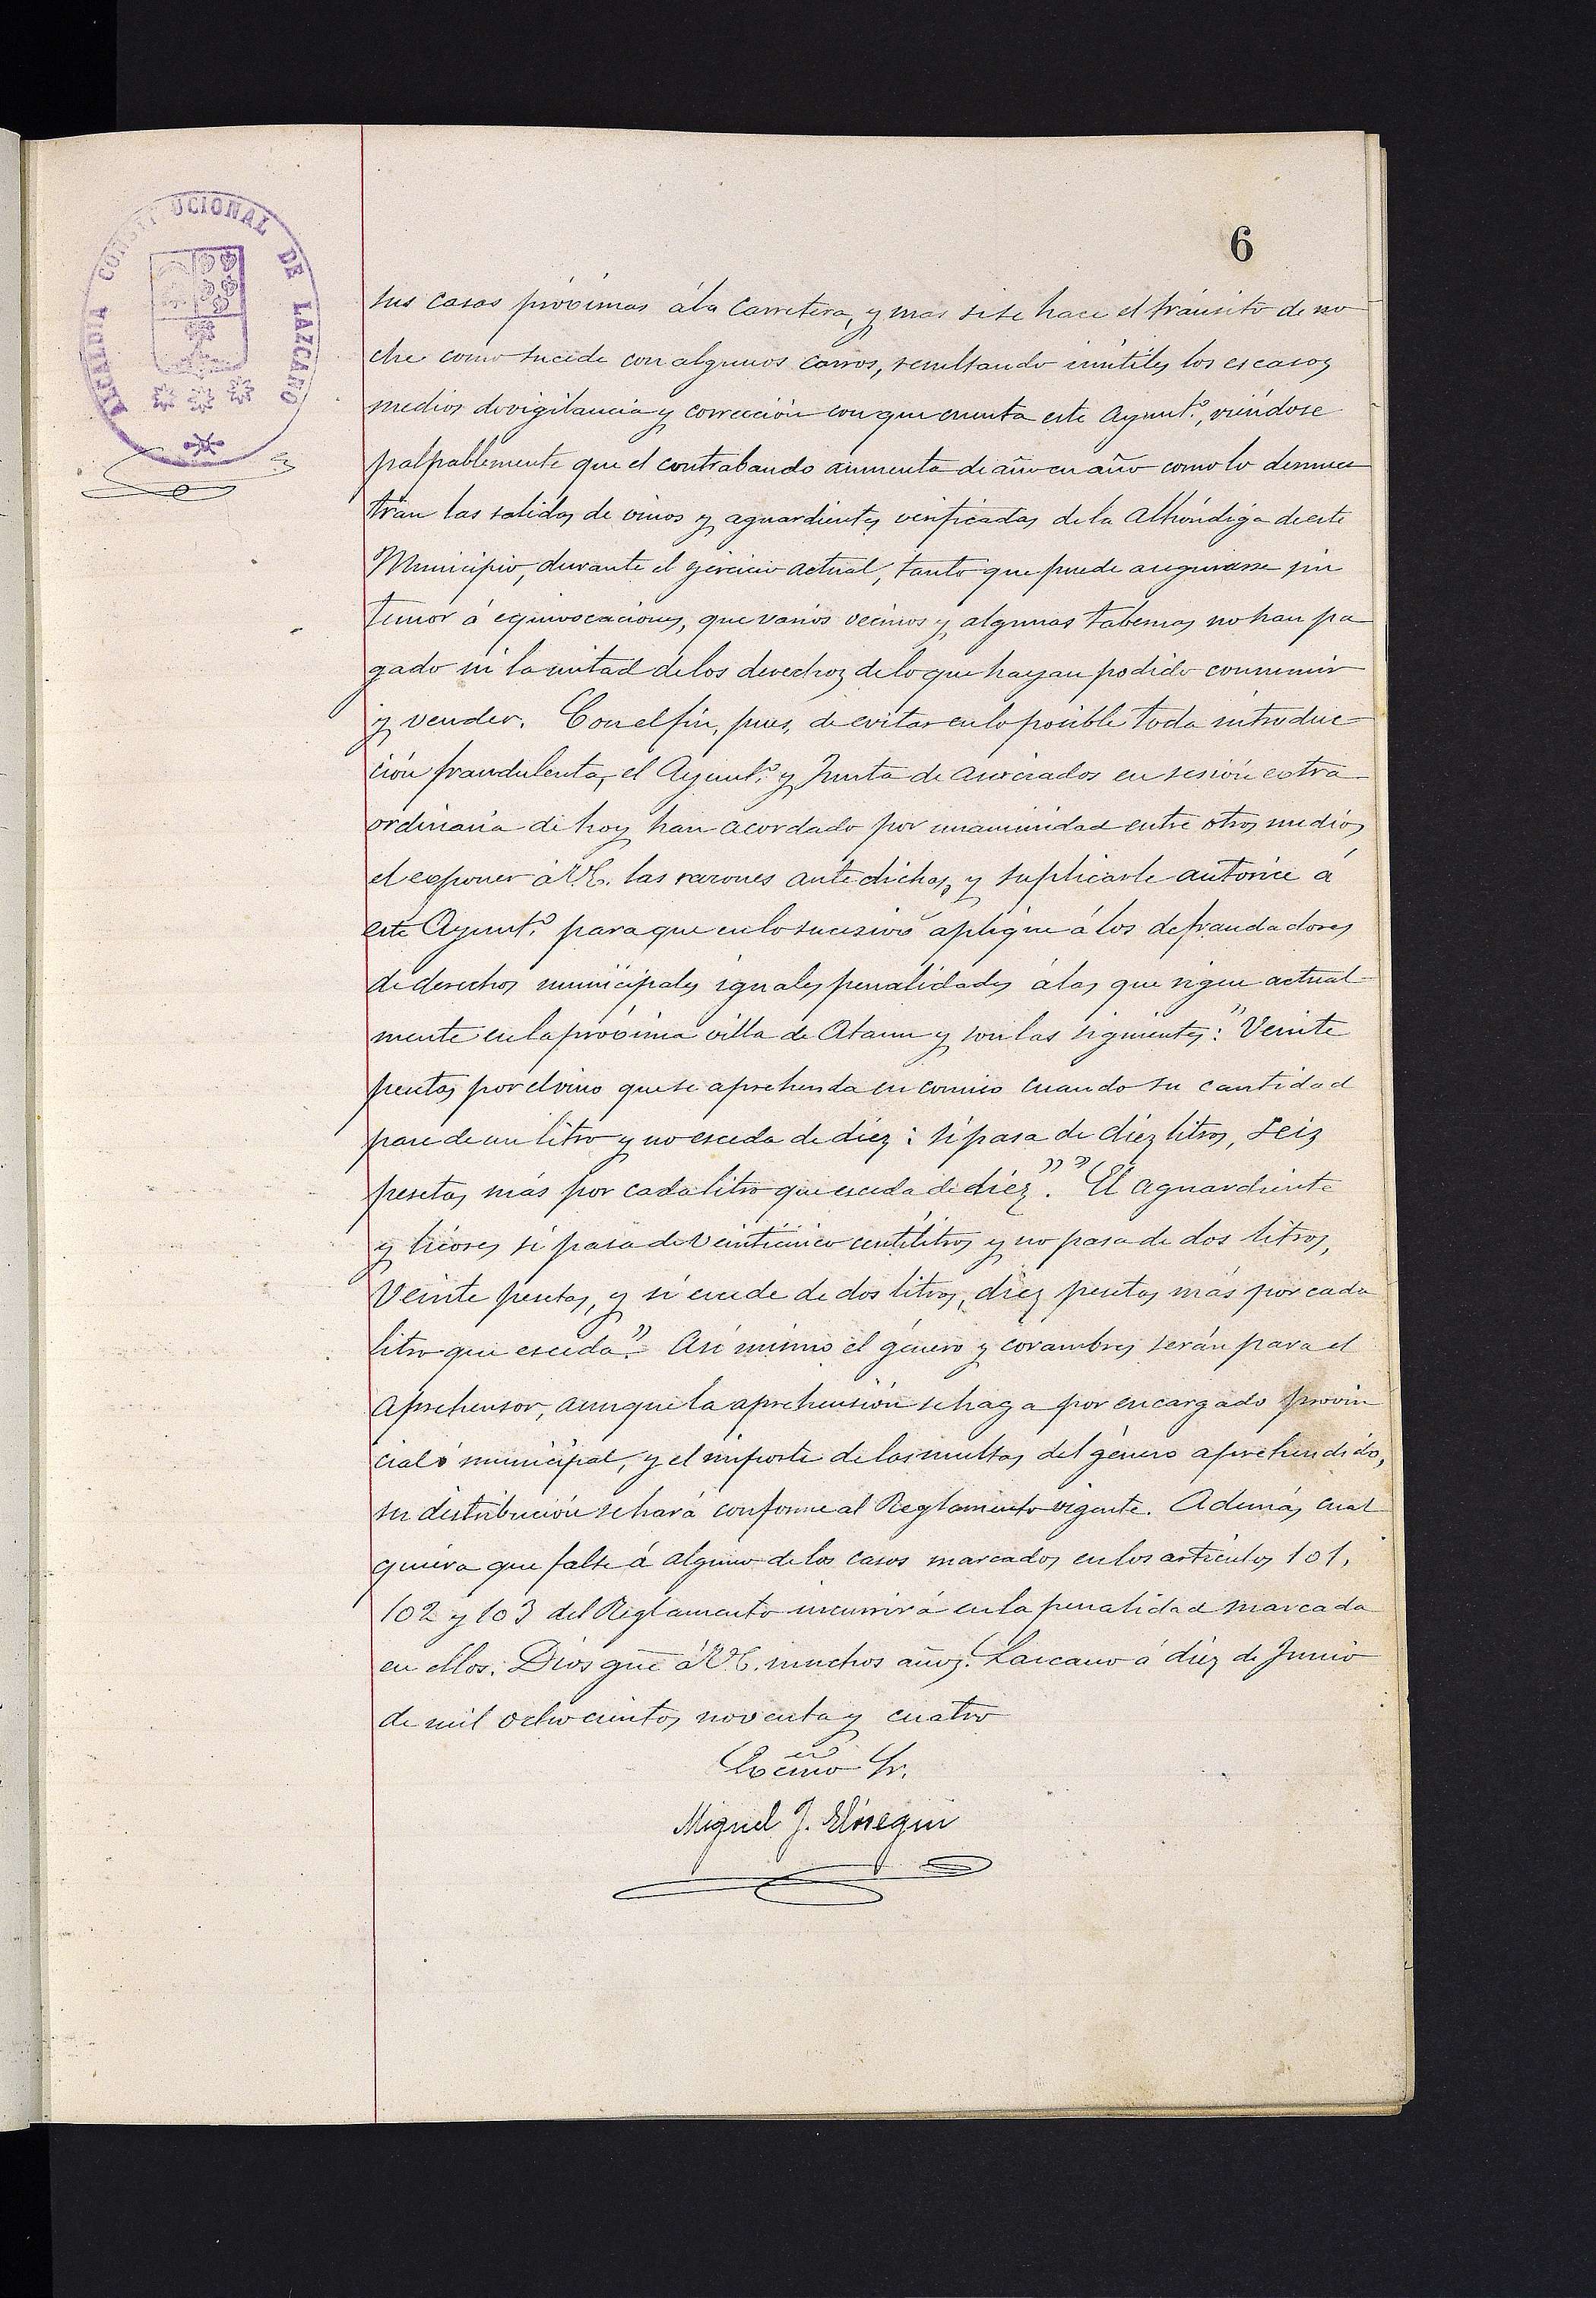 ALCALDIA CONSTITUCIONAL DE LAZCANO
6
sus casas próximas á la carretera, y mas si se hace el tránsito de no
che como sucede con algunos carros, resultando inútiles los escasos
medios de vigilancia y corrección con que cuenta este Ayunt.º, viéndose
palpablemente que el contrabando aumenta de año en año como lo demues
tran las salidas de vinos y aguardientes verificadas de la Alhóndiga de este
Municipio, durante el ejercicio actual, tanto que puede asegurarse sin
temor á equivocaciones, que varios vecinos y algunas tabernas no han pa
gado ni la mitad de los derechos de lo que hayan podido consumir
y vender. Con el fin, pues, de evitar en lo posible toda introduc-
ción fraudulenta, el Ayunt.º y Junta de asociados en sesión extra
ordinaria de hoy han acordado por unanimidad entre otros medios,
el exponer á V.E. las razones antedichas, y suplicarle autorice á
este Ayunt.º para que en lo sucesivo aplique á los defraudadores
de derechos municipales iguales penalidades á las que rigen actual-
mente en la próxima villa de Ataun y son las siguientes: "Veinte
pesetas por el vino que se aprehenda en comiso cuando su cantidad
pase de un litro y no esceda de diez: si pasa de diez litros, seis
pesetas más por cada litro que esceda de diez". "El aguardiente
y licores si pasa de veinticinco centilitros y no pasa de dos litros,
Veinte pesetas, y si escede de dos litros, diez pesetas más por cada
litro que esceda". Asi mismo el género y corambres serán para el
aprehensor, aunque la aprehensión se haga por encargado provin
cial ó municipal, y el importe de las multas del género aprehendido,
su distribución se hará conforme al Reglamento vigente. Además, cual
quiera que falte á alguno de los casos marcados en los artículos 101,
102 y 103 del Reglamento incurrirá en la penalidad marcada
en ellos. Dios gue á V.E. muchos años. Lazcano á diez de Junio
de mil ochocientos noventa y cuatro
Excmo Sr.
Miguel J. Elósegui